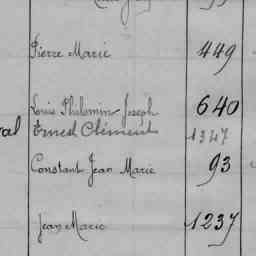 Pierre Marie 449
Louis Philomin Joseph 640
Ernest Clément 1347
Constant Jean Marie 93
Jean Marie 1237